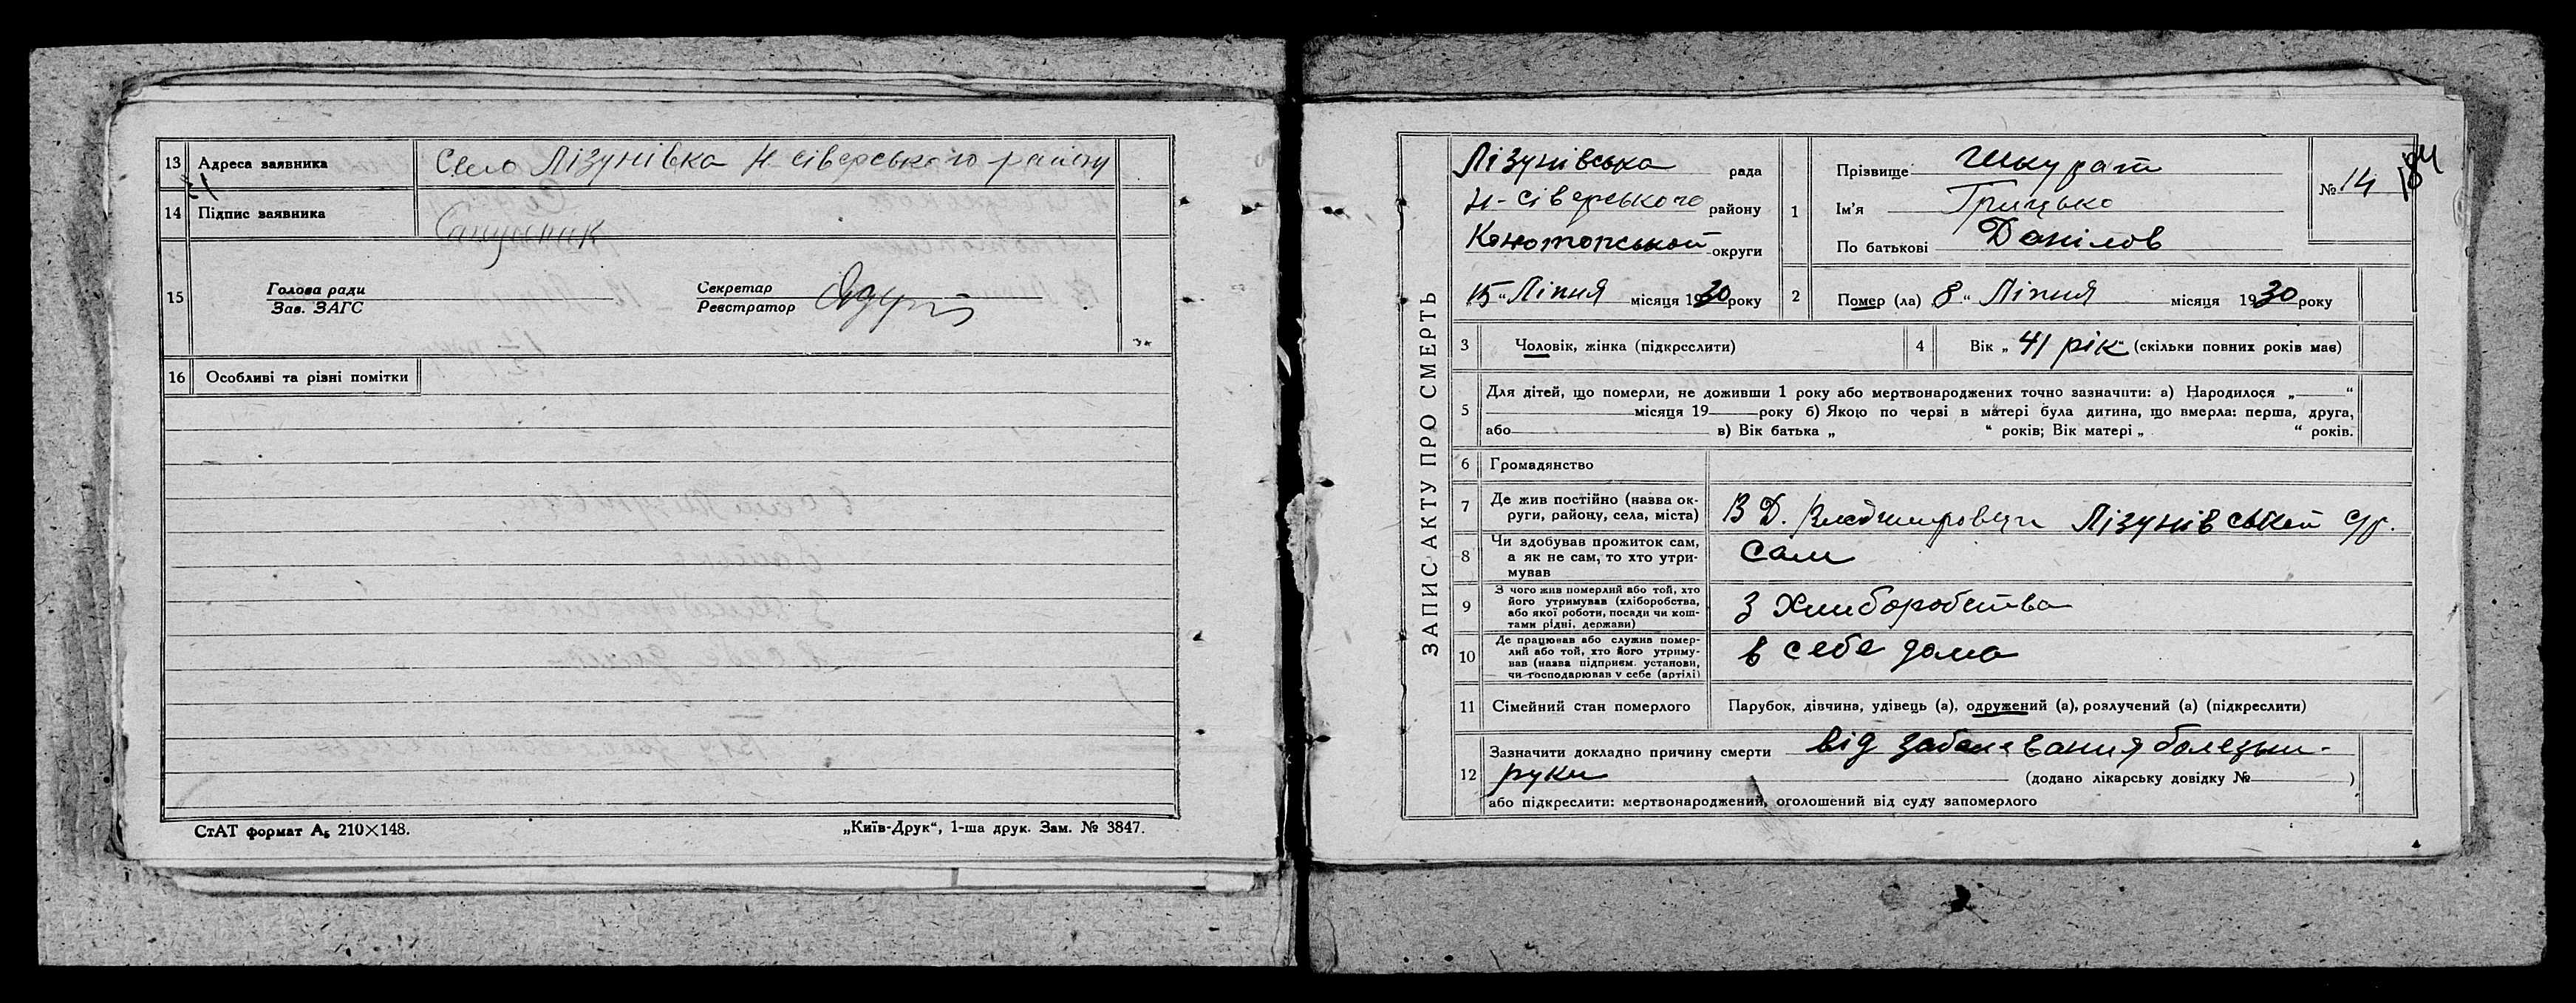 13 Адреса заявника Село Лізунівка Н. сіверського району
14 Підпис заявника
15 Голова ради Секретар
Зав. ЗАГС Реєстратор
16 Особливі та різні помітки
СтАТ формат А₅ 210×148. „Київ-Друк“, 1-ша друк. Зам. № 3847.
ЗАПИС АКТУ ПРО СМЕРТЬ
Лізунівська рада
Н-сіверського району
Конотопської округи
15 „ Ліпня місяця 1930 року
1 Прізвище Шкурат
Ім'я Грицько
По батькові Данілов
№ 14 184
2 Помер (ла) 8 „ Ліпня місяця 1930 року
3 Чоловік, жінка (підкреслити)
4 Вік „ 41 рік “ (скільки повних років має)
5 Для дітей, що померли, не доживши 1 року або мертвонароджених точно зазначити: а) Народилося „ “
місяця 19 року б) Якою по черзі в матері була дитина, що вмерла: перша, друга,
або в) Вік батька „ “ років; Вік матері „ “ років.
6 Громадянство
7 Де жив постійно (назва ок-
руги, району, села, міста) В Д. Лізунівській с/р.
8 Чи здобував прожиток сам,
а як не сам, то хто утри-
мував сам
9 З чого жив померлий або той, хто
його утримував (хліборобства,
або якої роботи, посади чи кош-
тами рідні, держави) З Хлиборобства
10 Де працював або служив помер-
лий або той, хто його утриму-
вав (назва підприєм. установи,
чи господарював у себе (артілі) в себе дома
11 Сімейний стан померлого Парубок, дівчина, удівець (а), одружений (а), розлучений (а) (підкреслити)
12 Зазначити докладно причину смерти від заболевания болезни
руки (додано лікарську довідку № )
або підкреслити: мертвонароджений, оголошений від суду запомерлого